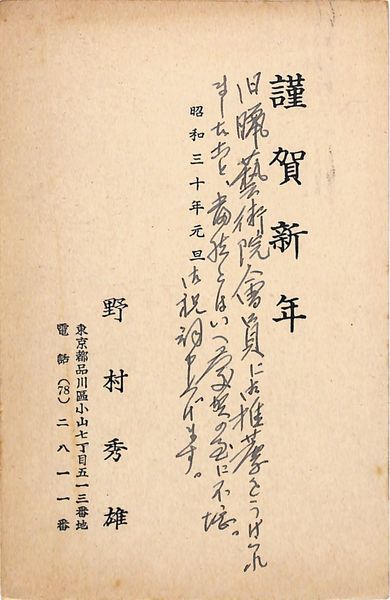 謹賀新年
旧臘藝術院會員に御推薦をうけられ
ましたこと 当然とはいへ 慶賀の至に不堪。
御祝詞申上げます。
昭和三十年元旦
野村秀雄
東京都品川區小山七丁目五一三番地
電話(78)二八一一番